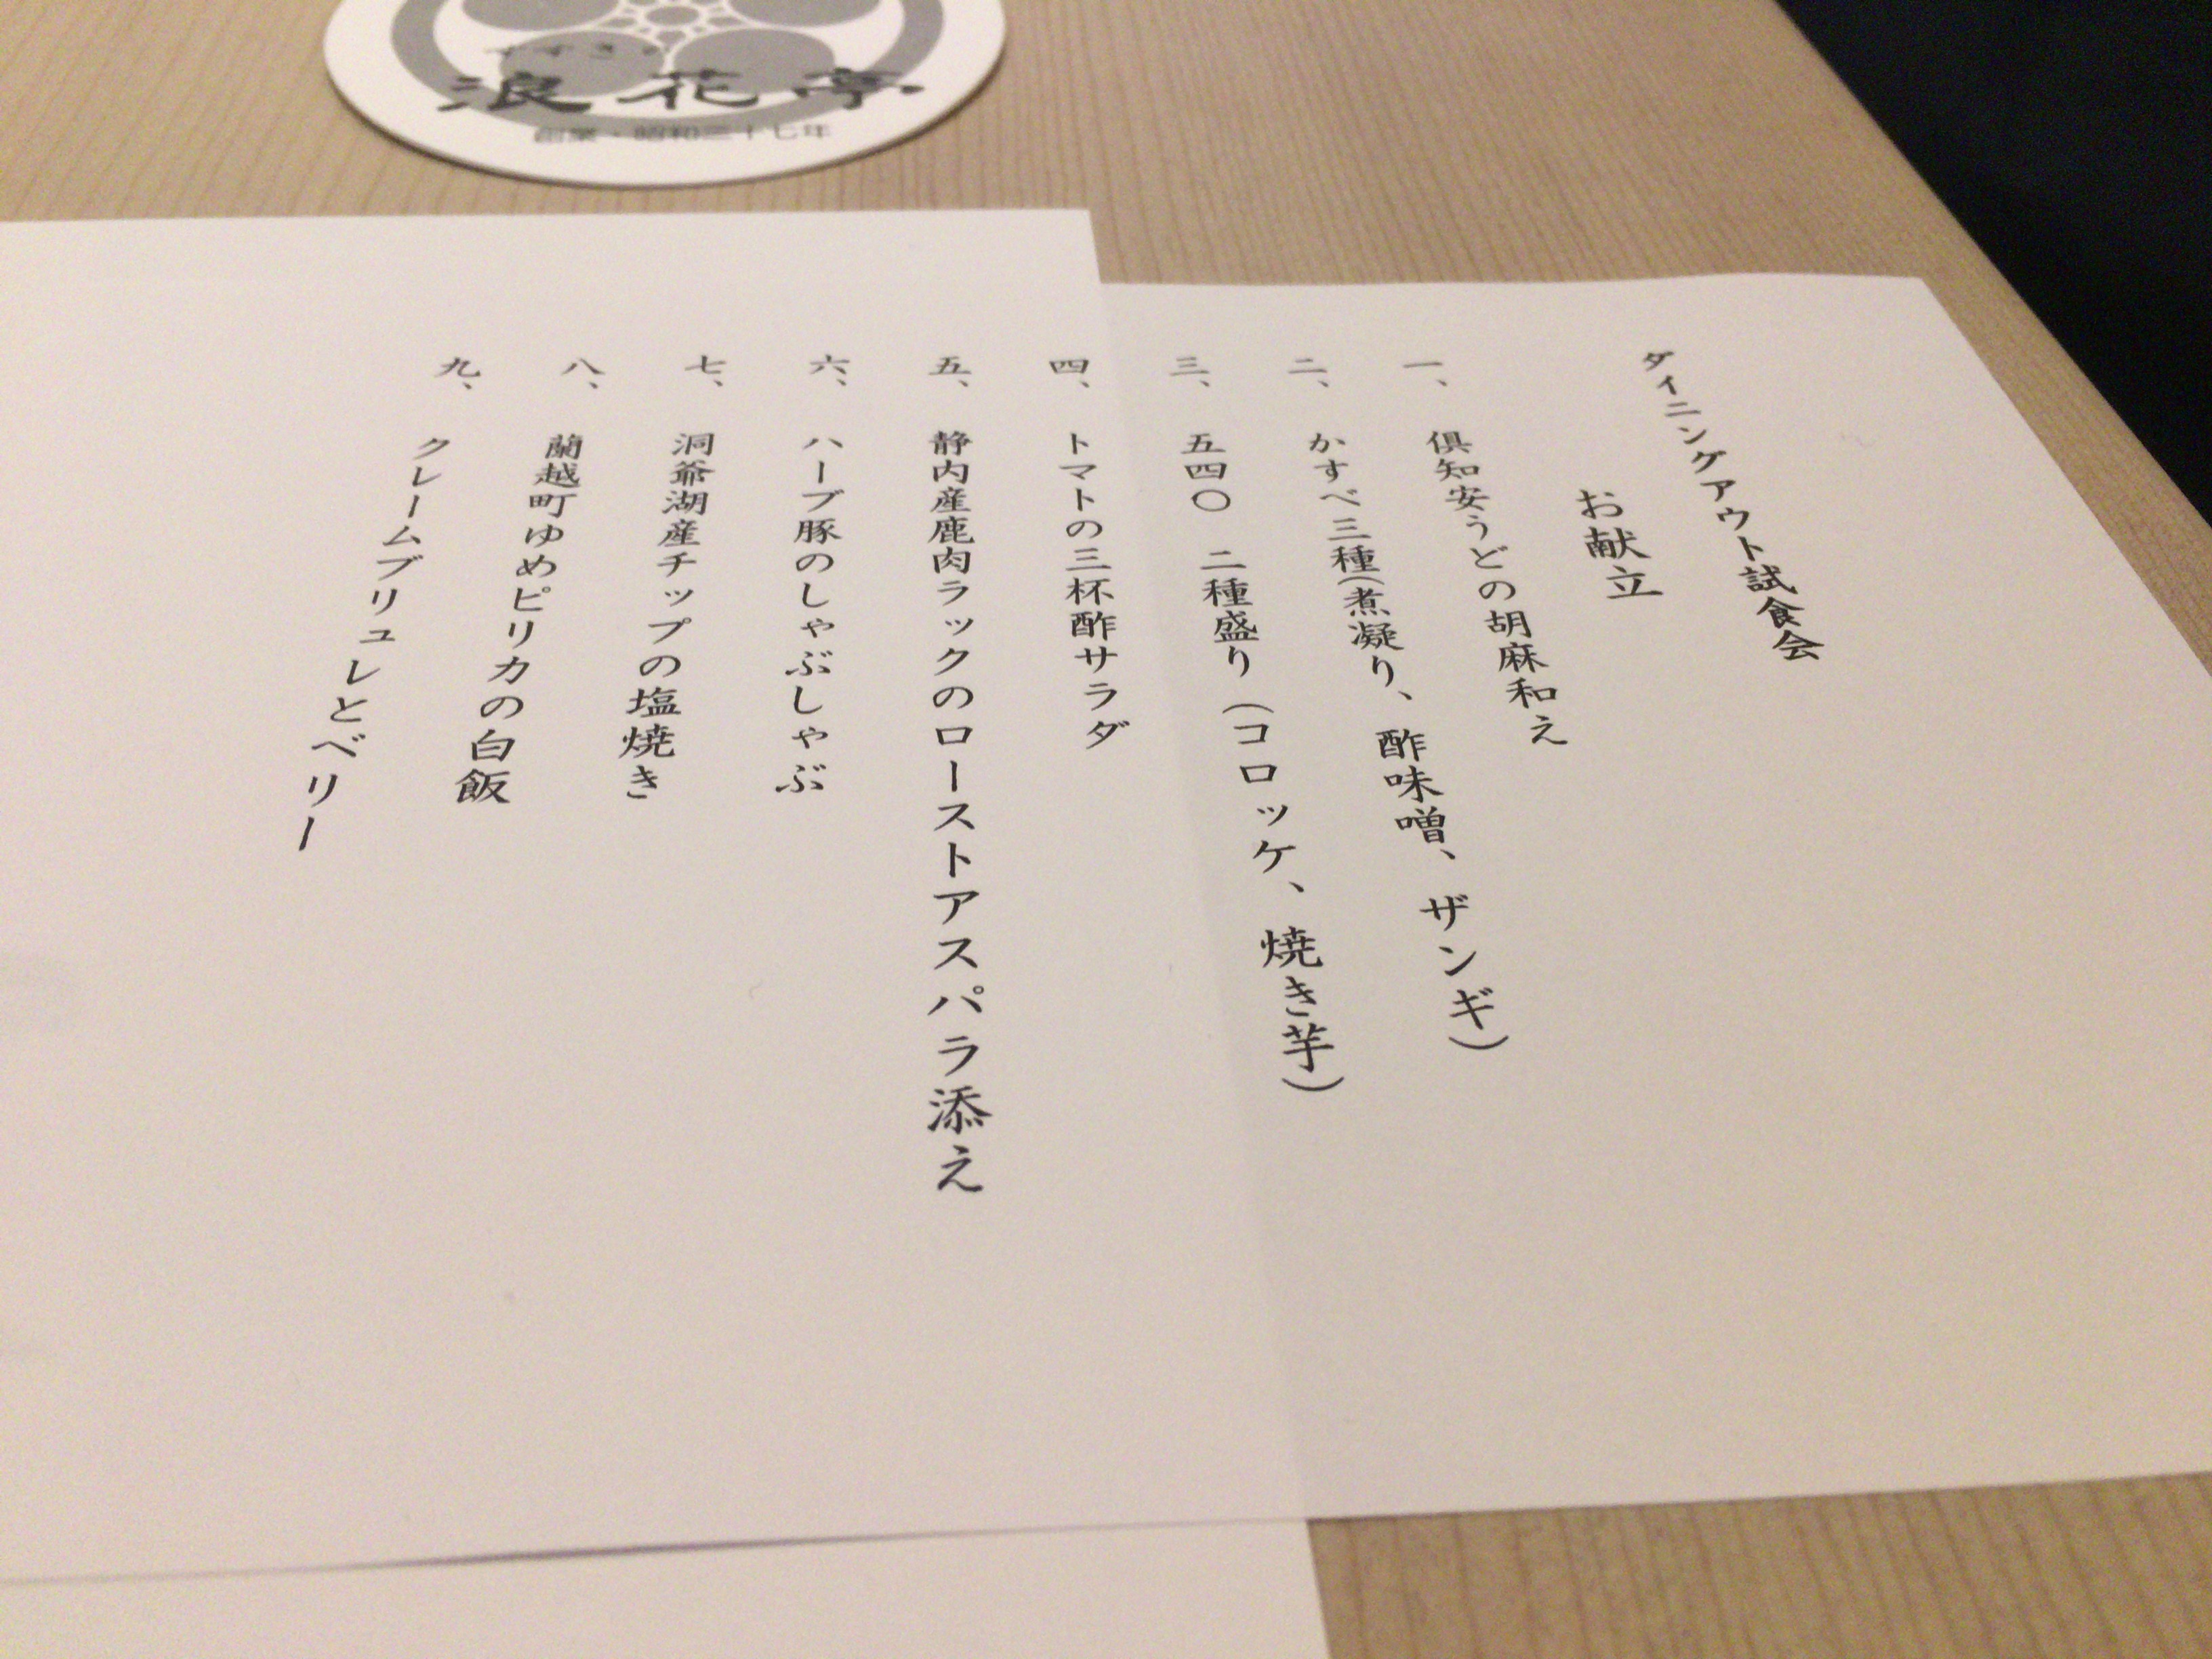 すすきの
浪花亭
創業・昭和三十七年
ダイニングアウト試食会
お献立
一、 倶知安うどの胡麻和え
二、 かすべ三種(煮凝り、酢味噌、ザンギ)
三、 五四〇 二種盛り(コロッケ、焼き芋)
四、 トマトの三杯酢サラダ
五、 静内産鹿肉ラックのローストアスパラ添え
六、 ハーブ豚のしゃぶしゃぶ
七、 洞爺湖産チップの塩焼き
八、 蘭越町ゆめピリカの白飯
九、 クレームブリュレとベリー